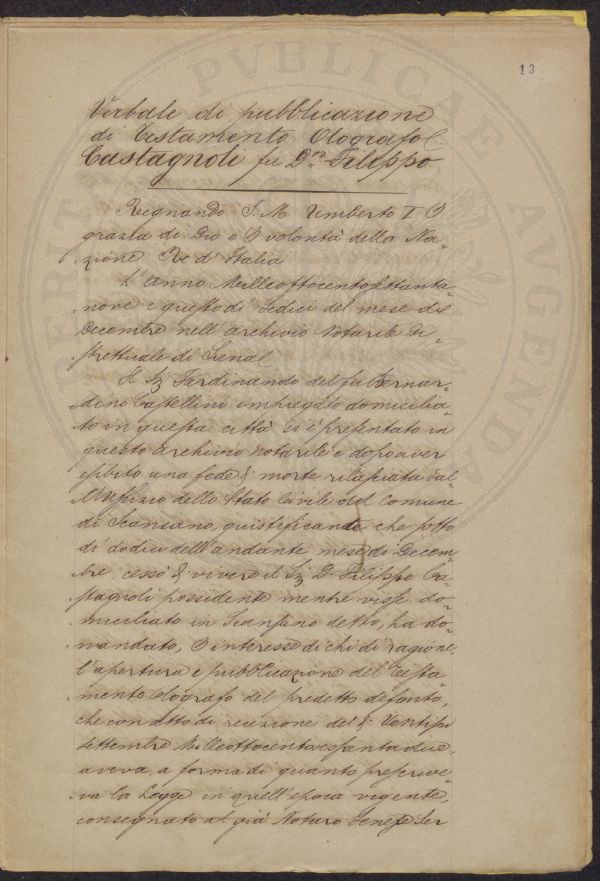 13
Verbale di pubblicazione
di Testamento Olografo
Castagnoli fu D.n Filippo
Regnando S. M. Umberto I
grazia di Dio e volontà della Na-
zione Re d'Italia
L'anno Milleottocentosettanta-
nove e questo dì Sedici del mese di
Decembre nell'archivio Notarile Di-
strettuale di Siena
Il Ferdinando del fu Bernar-
dino Castellini impiegato domicilia-
to in questa città si è presentato in
questo archivio notarile e dopo aver
esibito una fede di morte rilasciata dal
l'Uffizio dello Stato Civile del Comune
di Scansano, giustificante che sotto
dì dodici dell'andante mese di Decem-
bre, cessò di vivere il D. Filippo Ca-
stagnoli possidente mentre visse do-
miciliato in Scansano detto, ha do-
mandato, interesse di chi di ragione,
l'apertura e pubblicazione del Testa-
mento Olografo del predetto defonto,
che con atto di recezione del dì Ventisei
Settembre Milleottocentosessantadue,
aveva, a forma di quanto prescrive-
va la Legge in quell'epoca vigente,
consegnato al già Notaro Ser
PVBLICAE AVGENDA